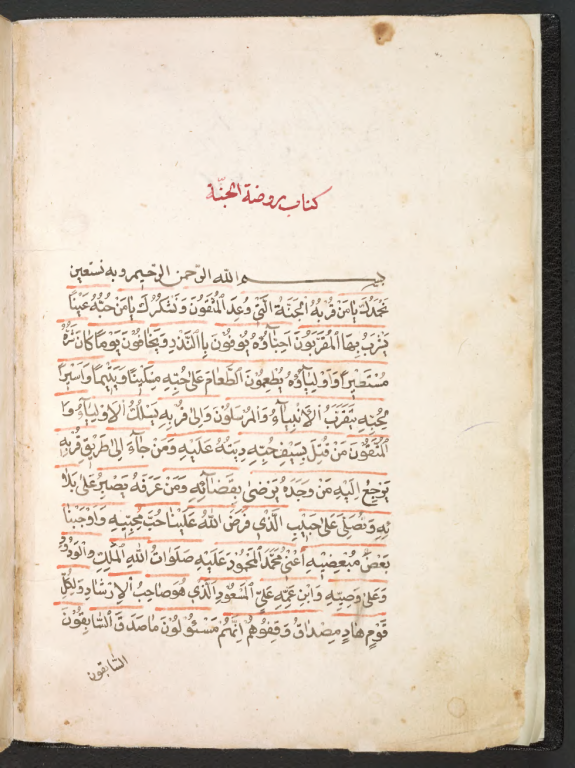 كتاب روضة الجنّة
بسم الله الرّحمن الرّحيم وبه نستعين
نحمدك يا من قربه الجنة الّتي وعد المتقون ونشكرك يا من حبّه عينا
يشرب بها المقرّبون احبّاؤه يوفون بالنّذر ويخافون يوما كان شرّه
مستطيرا واولياؤه يطعمون الطّعام على حبّه مسكينا ويتيما واسيرا
بحبّه يتقرّب الانبياء والمرسلون والى قربه يسلك الاولياء وا
المتقون من قتل بسيف حبّه ديته عليه ومن جاء الى طريق قربه
يرجع اليه من وجده يرضى بقضائه ومن عرفه يصبر على بلا
ئه ونصلّى على حبيب الّذي فرض الله علينا حبّ محبّيه واوجبنا
بغض مبغضيه اعني محمّد المحمود عليه صلوات الله الملك الودود
وعلى وصيّه وابن عمّه عليّ الّذي هو صاحب الارشاد ولكلّ
قوم هاد مصداق وقفوهم انّهم مسئولون ما صدق السّابقون
السّابقون